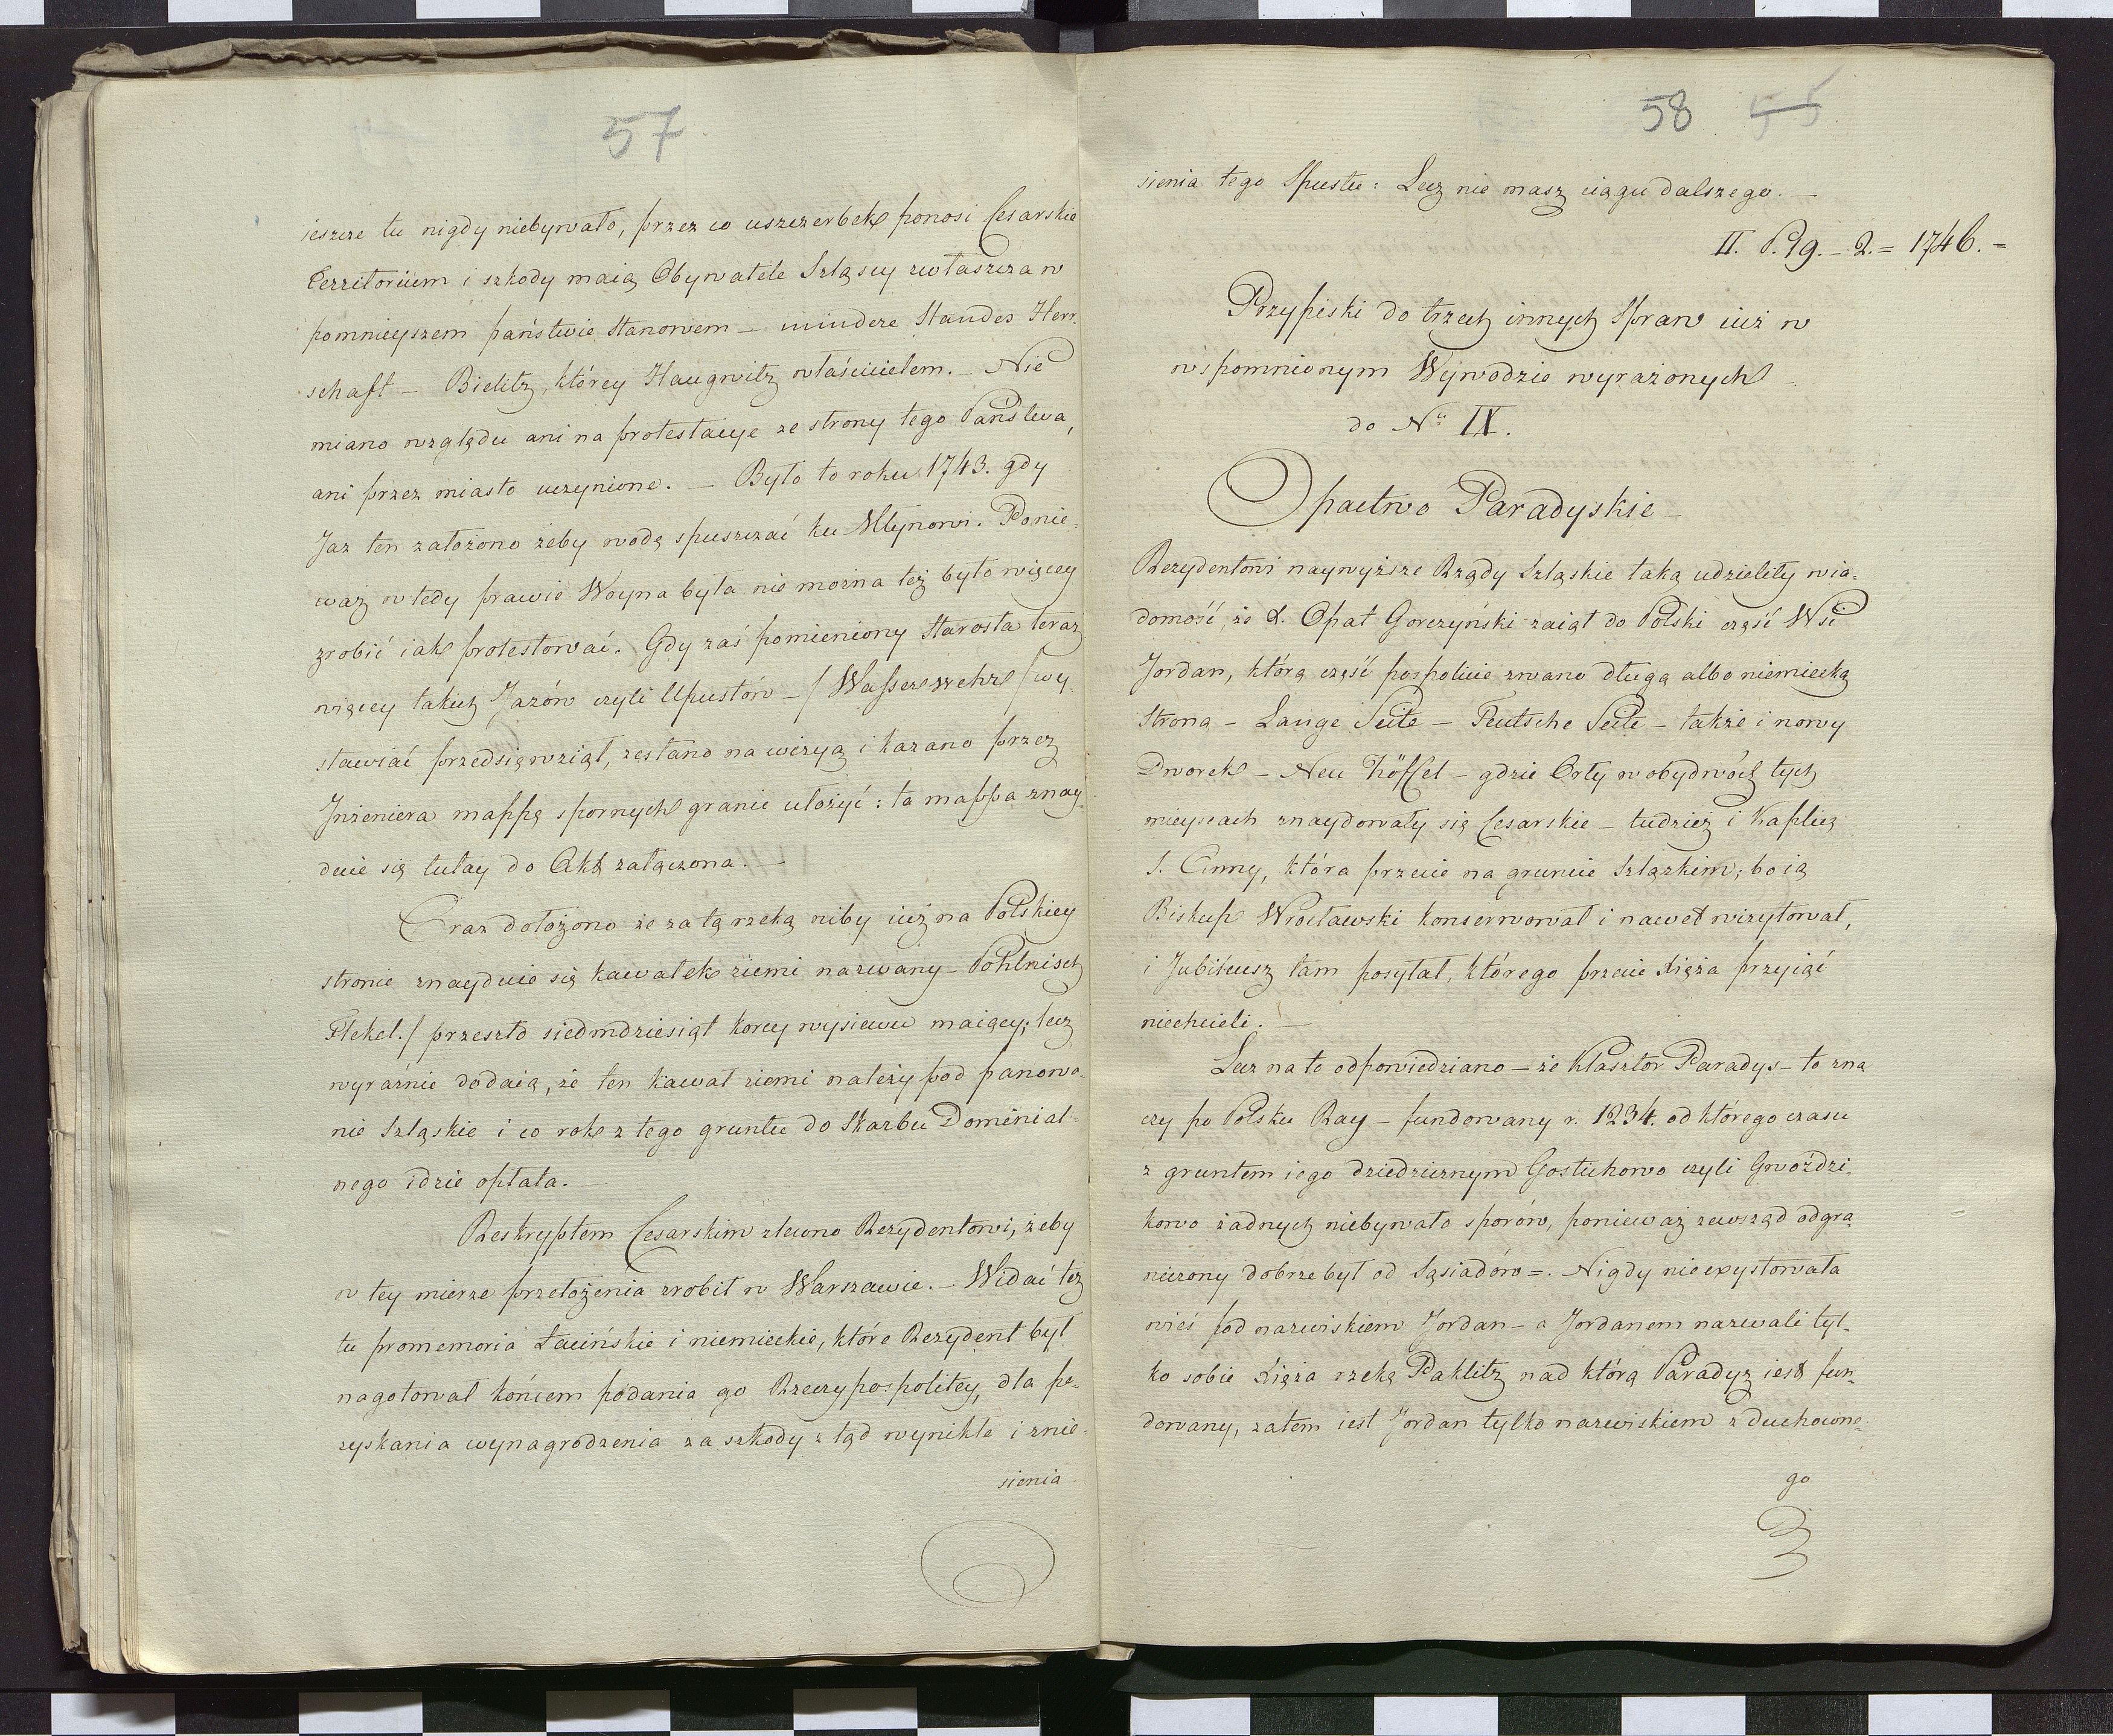 57
ieszcze tu nigdy niebywało, przez co uszczerbek ponosi Cesarskie
Territorium i szkody maią Obywatele Szląscy zwłaszcza w
pomnieyszem państwie Stanowem – mindere Standes Herr-
schaft – Bielitz, którey Haugwitz właścicielem. – Nie
miano względu ani na protestacye ze strony tego Państwa,
ani przez miasto uczynione. – Było to roku 1743. gdy
Jaz ten założono żeby wodę spuszczać ku Młynowi. Ponie-
waż wtedy prawie Woyna była nie można też było więcey
zrobić iak protestować. Gdy zaś pomieniony Starosta teraz
więcey takich Jazów czyli Upustów – / Wasserwehr / wy-
stawiać przedsięwziął, zesłano na wizyą i kazano przez
Inżeniera mappę spornych granic ułożyć: ta mappa znay-
duie się tutay do Akt załączona. –
Oraz dołożono że za tą rzeką niby iuż na Polskiey
stronie znayduie się kawałek ziemi nazwany – Pohlnisch
Flekel. / przeszło siedmdziesiąt korcy wysiewu maiący; lecz
wyraźnie dodaią, że ten kawał ziemi należy pod panowa-
nie Szląskie i co rok z tego gruntu do Skarbu Dominial-
nego idzie opłata. –
Reskryptem Cesarskim zlecono Rezydentowi, żeby
w tey mierze przełożenia zrobił w Warszawie. – Widać też
tu promemoria Łacińskie i niemieckie, które Rezydent był
nagotował końcem podania go Rzeczypospolitey, dla po-
zyskania wynagrodzenia za szkody z tąd wynikłe i znie-
sienia
58 55
sienia tego Spustu: Lecz nie masz ciągu dalszego. –
II. P. 19. – 2. = 1746. =
Przypiski do trzech innych Spraw iuż w
wspomnionym Wywodzie wyrażonych –
do No IX.
Opactwo Paradyskie –
Rezydentowi naywyższe Rządy Szląskie taką udzieliły wia-
domość, że X. Opat Gorczyński zaiął do Polski część Wsi
Jordan, którą część pospolicie zwano długą albo niemiecką
Stroną – Lange Seite – Teutsche Seite – także i nowy
Dworek – Neu Höffel – gdzie Orły w obydwóch tych
mieyscach znaydowały się Cesarskie – tudzież i Kaplicę
S. Anny, która przecie na gruncie Szląskim; bo ią
Biskup Wrocławski konserwował i nawet wizytował,
i Jubileusz tam posyłał, którego przecie Xięża przyiąć
niechcieli. –
Lecz na to odpowiedziano – że Klasztor Paradys – to zna
czy po Polsku Ray – fundowany r. 1234. od którego czasu
z gruntem iego dziedzicznym Gostichowo czyli Gwoździ-
kowo żadnych niebywało sporów, ponieważ zewsząd odgra-
niczony dobrze był od Sąsiadów =. Nigdy nie exystowała
wieś pod nazwiskiem Jordan – a Jordanem nazwali tyl-
ko sobie Xięża rzekę Paklitz nad którą Paradyz iest fun-
dowany, zatem iest Jordan tylko nazwiskiem z duchowne-
go